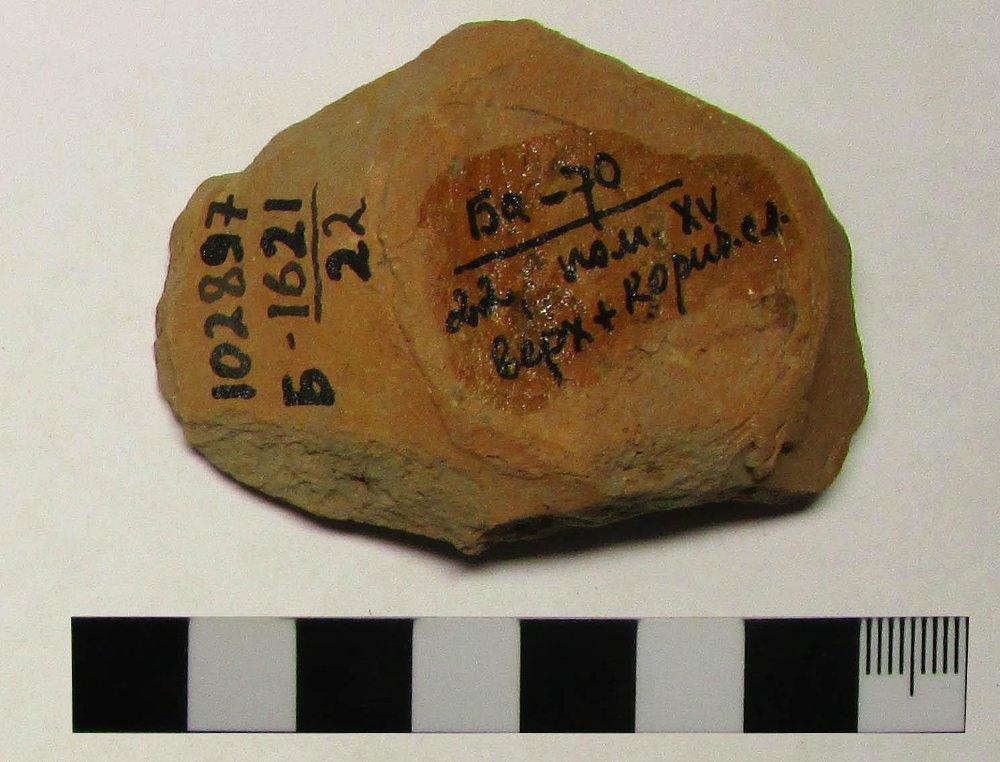 102897
Б-1621
22
Ба-70
22, пом. XV
верх + корид. сл.